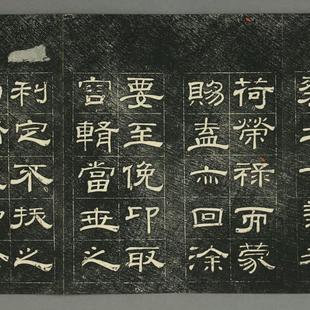 荷榮祿而蒙
賜盍亦回涂
要至俛卬取
容輯當世之
利定不拔之